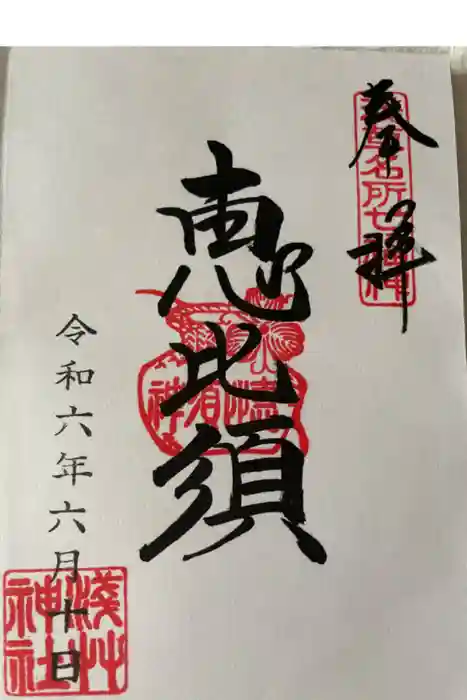 奉拝
浅草名所七福神
恵比須
令和六年六月十日
浅草神社